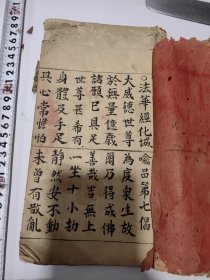 ○法華經化城喻品第七偈
大威德世尊為度衆生故
於無量億歲爾乃得成佛
諸願已具足善哉吉無上
世尊甚希有一坐十小劫
身體及手足靜然安不動
其心常憺怕未曾有散亂